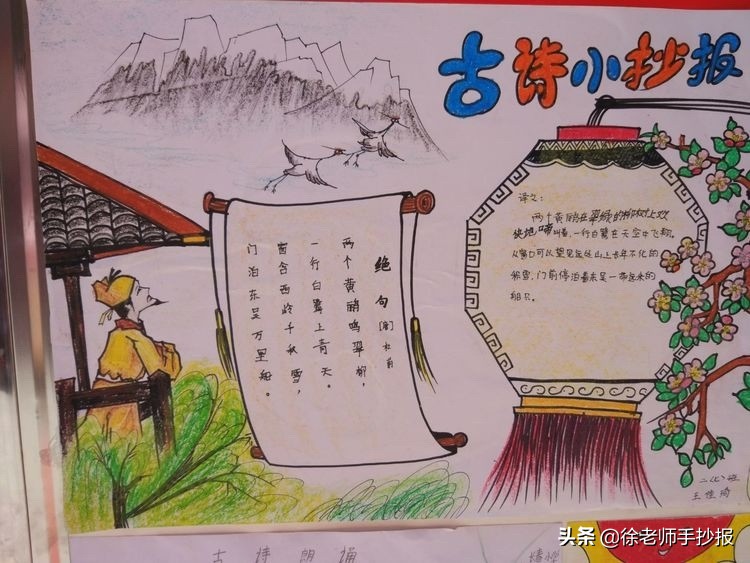 古诗小抄报
绝句[唐]杜甫
两个黄鹂鸣翠柳,
一行白鹭上青天。
窗含西岭千秋雪,
门泊东吴万里船。
译文:
两个黄鹂在翠绿的柳树上欢
快地啼叫着,一行白鹭在天空中飞翔。
从窗口可以望见远处山上年不化的
积雪,门前停泊着东吴一带远来的
船只。
二班
王佳琦
古诗朗诵
头条 @徐老师手抄报